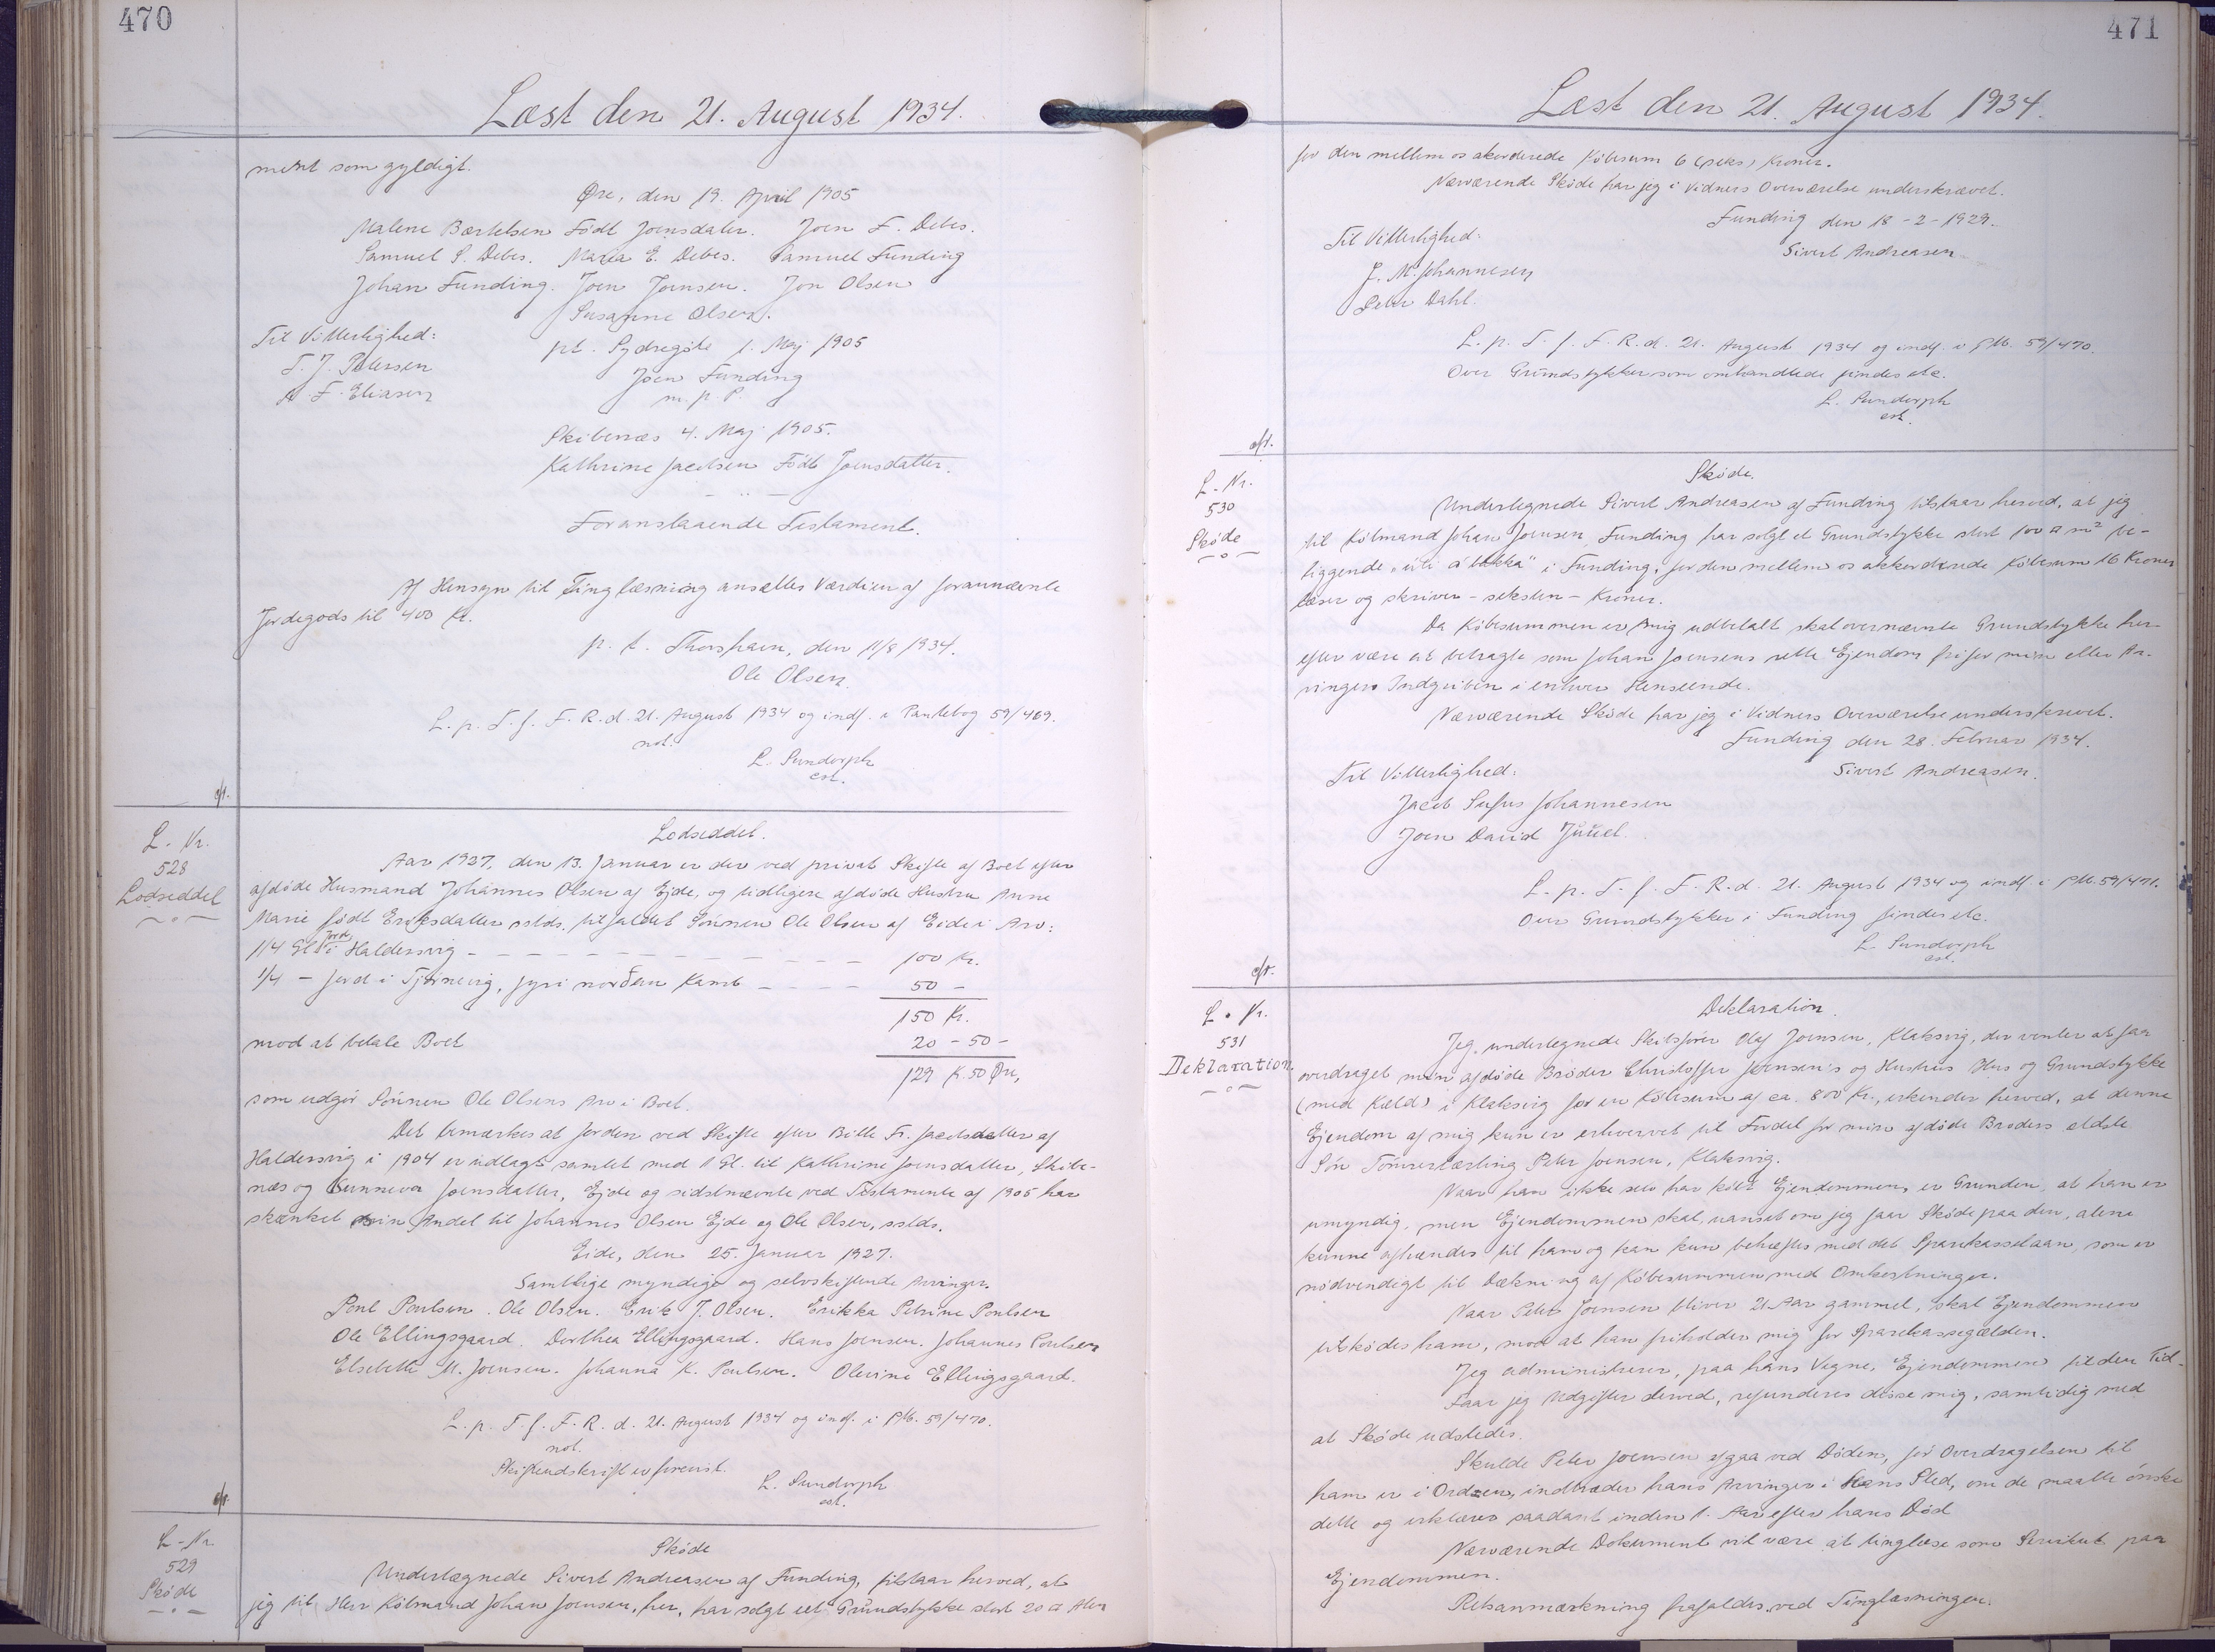 470
Læst den 21. August 1934.
ment som gyldigt.
Øre, den 19. April 1905
Malene Bærtelsen Født Joensdater. Joen F. Debes.
Samuel S. Debes. Maria E. Debes. Samuel Funding
Johan Funding. Joen Joensen. Jon Olsen
Susanne Olsen.
Til Vitterlighed:
pt. Sydregøte 1. Maj 1905
T. J. Petersen
Joen Funding
F. Eliasen
m. p. P.
Skibenæs 4. Maj 1905.
Kathrine Jacobsen Født Joensdatter.
Foranstaaende Testament.
Af Hensyn til Tinglæsning ansættes Værdien af forannævnte
Jordegods til 400 Kr.
p. t. Thorshavn, den 11/8 1934.
Ole Olsen.
L. p. T. f. F. R. d. 21. August 1934 og indf. i Pantebog 59/469.
not.
L. Sundorph
cst.
L. Nr.
528
Lodseddel
Lodseddel.
Aar 1927, den 13. Januar er der ved privat Skifte af Boet efter
afdøde Husmand Jóhannes Olsen af Ejde, og tidligere afdøde Hustru Anne
Marie født Eriksdatter sstds. tilfaldet Sønnen Ole Olsen af Eide i Arv:
1/4 Gl. Jord i Haldersvig - - - - - - 100 Kr.
1/4 - Jord i Tjørnevig, fyri norðan Kamb - - - - 50 -
150 Kr.
mod at betale Boet 20 - 50 -
129 K. 50 Øre,
som udgør Sønnen Ole Olsens Arv i Boet.
Det bemærkes at Jorden ved Skifte efter Bille Fr. Jacobsdatter af
Haldersvig i 1904 er udlagt samlet med 1 Gl. til Kathrine Joensdatter, Skibe-
næs og Gunneva Joensdatter, Ejde og sidstnævnte ved Testamente af 1905 har
skænket sin Andel til Johannes Olsen Ejde og Ole Olsen, sstds.
Eide, den 25. Januar 1927.
Samtlige myndige og selvskiftende Arvinger.
Poul Poulsen. Ole Olsen. Erik J. Olsen. Erikka Petrine Poulsen
Ole Ellingsgaard. Dorthea Ellingsgaard. Hans Joensen. Johannes Poulsen
Elsebeth M. Joensen. Johanna K. Poulsen. Olevine Ellingsgaard.
L. p. T. f. F. R. d. 21. August 1934 og indf. i PM. 59/470.
not.
Skifteudskrift er forevist.
L. Sundorph
cst.
L. Nr.
529
Skøde
Skøde
Undertegnede Sivert Andreasen af Funding, tilstaar herved, at
jeg til Herr Købmand Johan Joensen, her, har solgt eet Grundstykke stort 20 □ Alen
471
Læst den 21. August 1934.
for den mellem os akorderede Købesum 6 (seks) Kroner.
Nærværende Skøde har jeg i Vidners Overværelse underskrevet.
Funding den 18-2-1929.
Til Vitterlighed:
Sivert Andreasen
J. M. Johannesen
Peter Dahl.
L. p. T. f. F. R. d. 21. August 1934 og indf. i PM. 59/470.
Over Grundstykker som omhandlede findes etc.
L. Sundorph
cst.
L. Nr.
530
Skøde
Skøde.
Undertegnede Sivert Andreasen af Funding tilstaar herved, at jeg
til Købmand Johan Joensen, Funding har solgt et Grundstykke stort 100 □ m² be-
liggende „úti á bakka" i Funding, for den mellem os akkorderede Købesum 16 Kroner
læser og skriver - seksten - Kroner.
Da Købesummen er mig udbetalt skal overnævnte Grundstykke her-
efter være at betragte som Johan Joensens rette Ejendom fri for min eller Ar-
vingers Indgriben i enhver Henseende.
Nærværende Skøde har jeg i Vidners Overværelse underskrevet.
Funding den 28. Februar 1934.
Til Vitterlighed:
Sivert Andreasen.
Jacob Sufus Johannesen
Joen David Juuel.
L. p. T. f. F. R. d. 21. August 1934 og indf. i PM. 59/471.
Over Grundstykker i Funding findes etc.
L. Sundorph
cst.
L. Nr.
531
Deklaration
Deklaration.
Jeg undertegnede Skibsfører Olaf Joensen, Klaksvig, der venter at faa
overdraget min afdøde Broder Christoffer Joensen's og Hustrus Hus og Grundstykke
(med Kæld) i Klaksvig for en Købesum af ca. 800 Kr., erkender herved, at denne
Ejendom af mig kun er erhvervet til Fordel for min afdøde Broders ældste
Søn Tømrerlærling Peter Joensen, Klaksvig.
Naar han ikke selv har købt Ejendommen, er Grunden, at han er
umyndig, men Ejendommen skal, uanset om jeg faar Skøde paa den, alene
kunne afhændes til ham og kan kun behæftes med det Sparekasselaan, som er
nødvendigt til Dækning af Købesummen med Omkostninger.
Naar Peter Joensen bliver 21 Aar gammel, skal Ejendommen
tilskødes ham, mod at han friholder mig for Sparekassegælden.
Jeg administrerer, paa hans Vegne, Ejendommen til den Tid.
Faar jeg Udgifter derved, refunderes disse mig, samtidig med
at Skøde udstedes.
Skulde Peter Joensen afgaa ved Døden, før Overdragelsen til
ham er i Orden, indtræder hans Arvinger i Hans Sted, om de maatte ønske
dette og erklærer saadant inden 1. Aar efter hans Død
Nærværende Dokument vil være at tinglæse som Servitut paa
Ejendommen.
Retsanmærkning frafaldes ved Tinglæsningen.